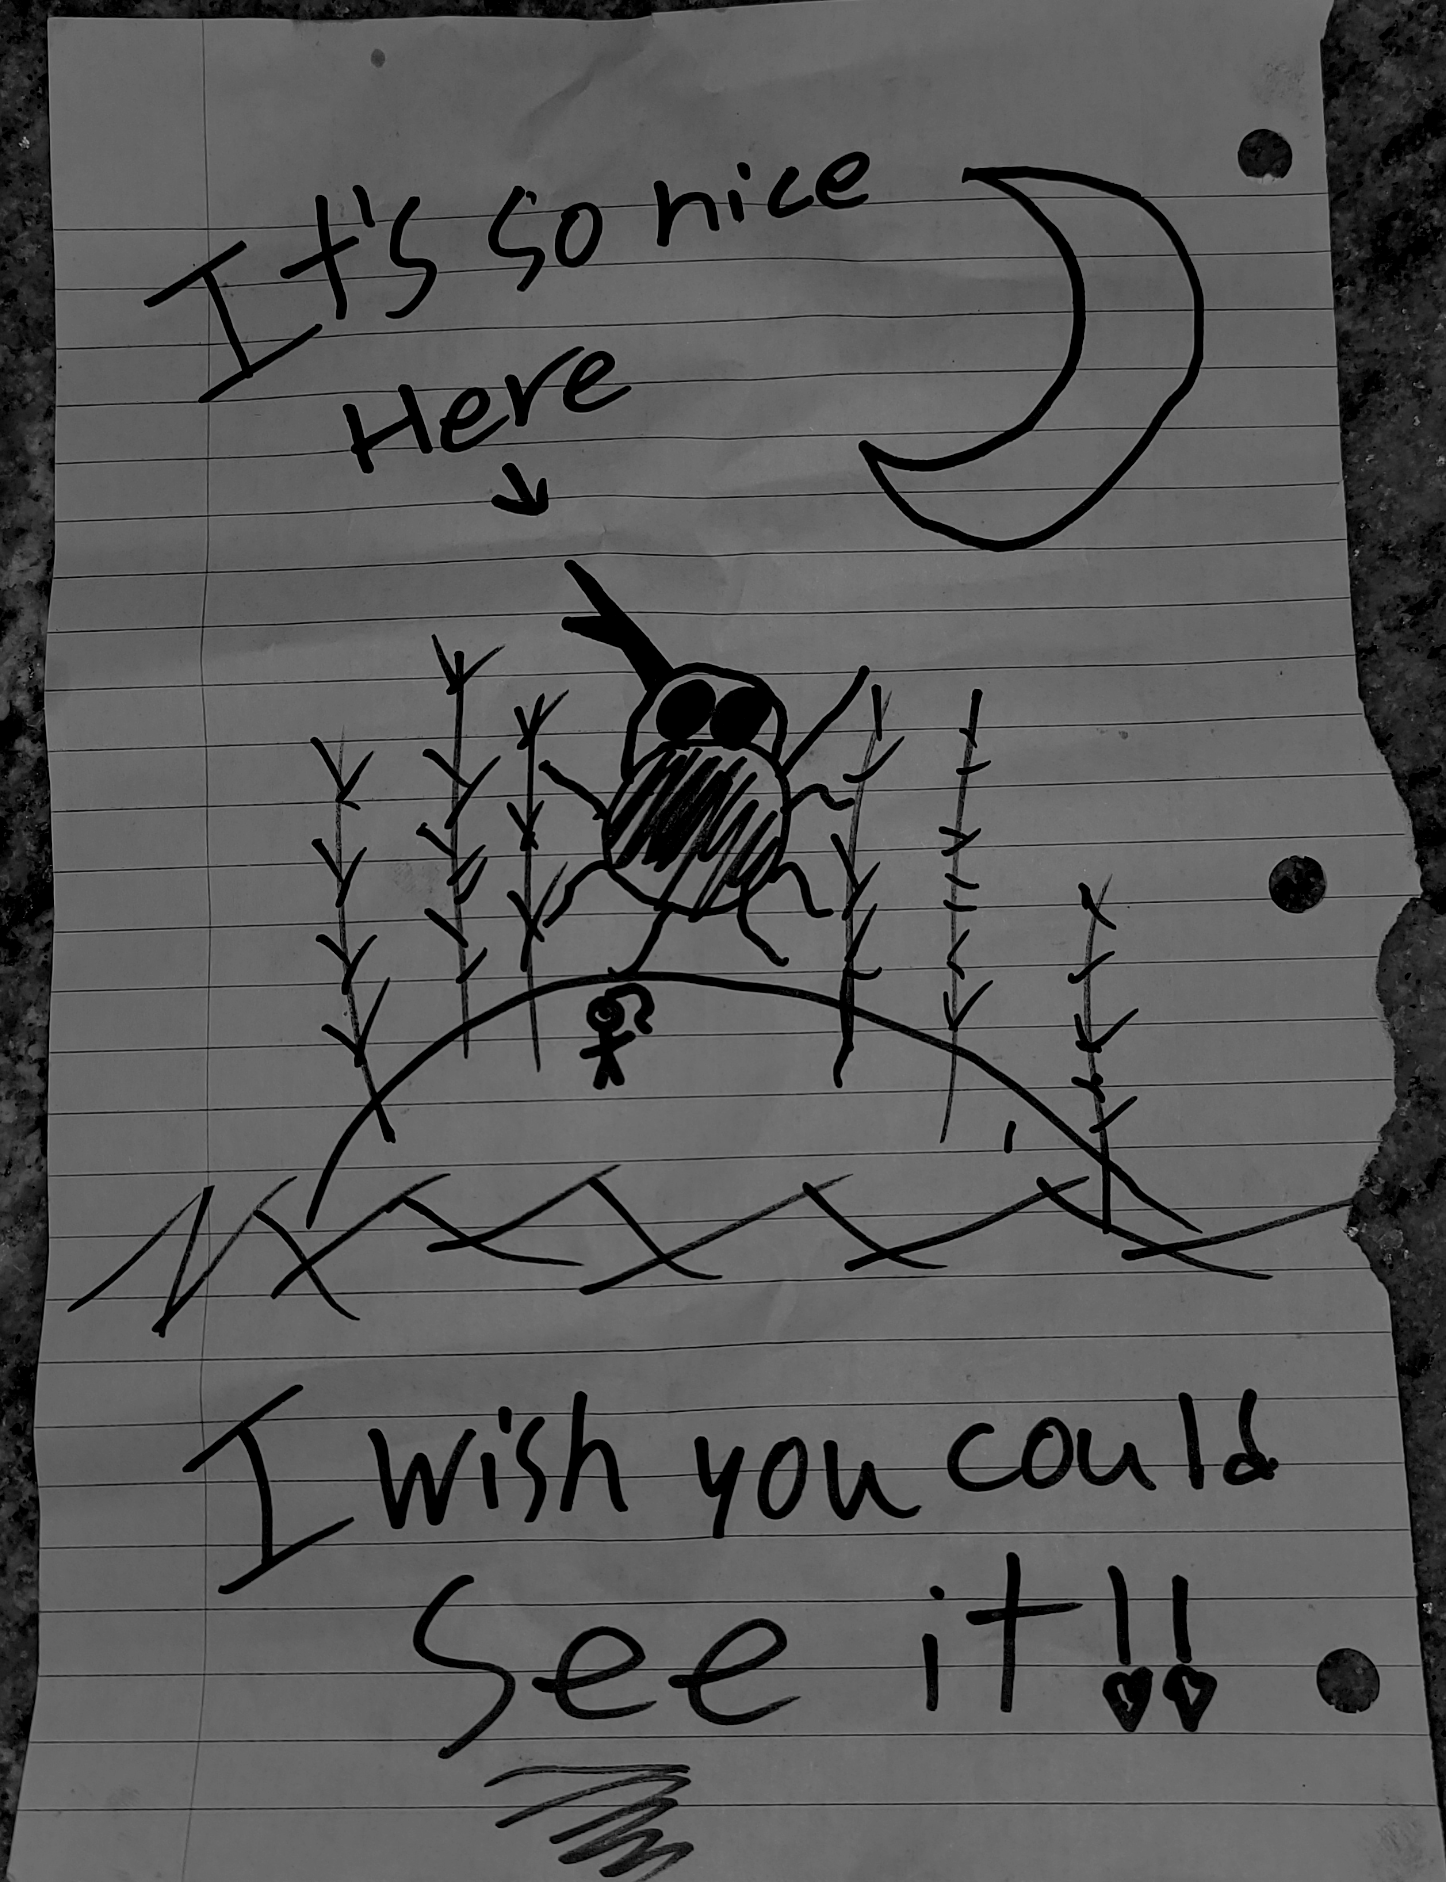 It's so nice
Here
I wish you could
See it!!